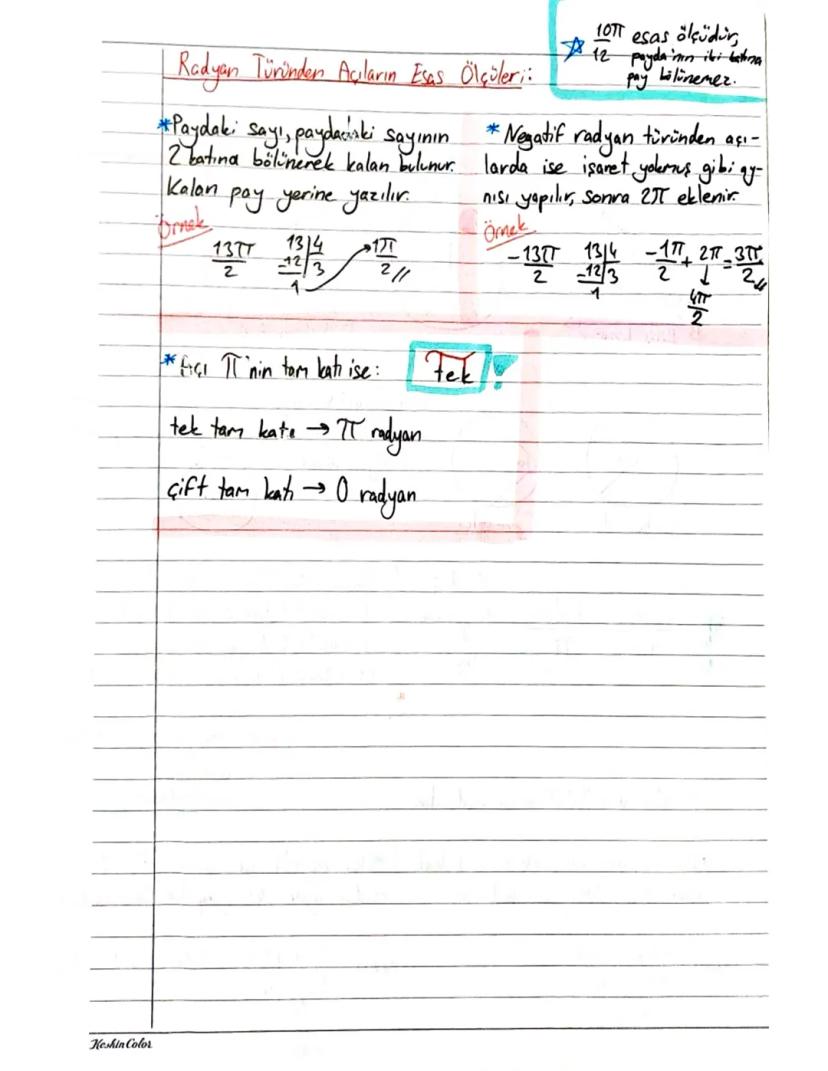 10π/12 esas ölçüdür,
payda'nın iki katına
pay bölünemez.
Radyan Türünden Açıların Esas Ölçüleri:
*Paydaki sayı, paydadaki sayının
2 katına bölünerek kalan bulunur.
Kalan pay yerine yazılır.
Örnek
13π/2 13|4 -12 3 1 → 1π/2 //
* Negatif radyan türünden açı-
larda ise işaret yokmuş gibi ay-
nısı yapılır, sonra 2π eklenir.
Örnek
-13π/2 13|4 -12 3 1 -1π/2 + 2π = 3π/2 //
↓
4π/2
* Açı π'nin tam katı ise: Tek !
tek tam katı → π radyan
çift tam katı → 0 radyan
Keskin Color